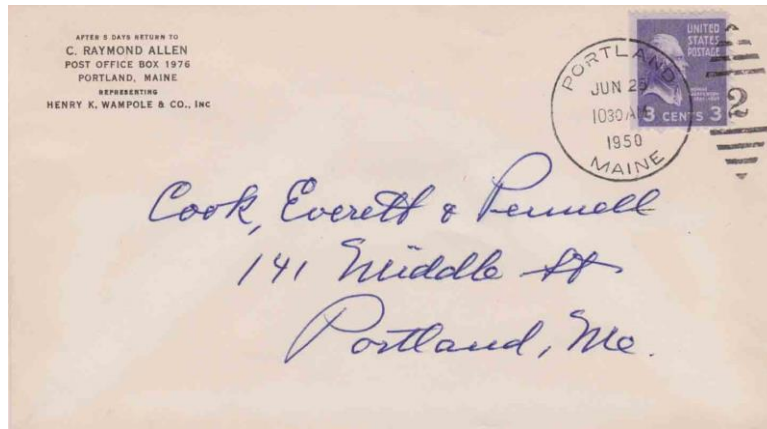 AFTER 5 DAYS RETURN TO
C. RAYMOND ALLEN
POST OFFICE BOX 1976
PORTLAND, MAINE
REPRESENTING
HENRY K. WAMPOLE & CO., INC
UNITED
STATES
POSTAGE
3 CENTS 3
PORTLAND
JUN 25
1030 AM
1950
MAINE
2
Cook, Everett & Pennell
141 Middle St
Portland, Me.